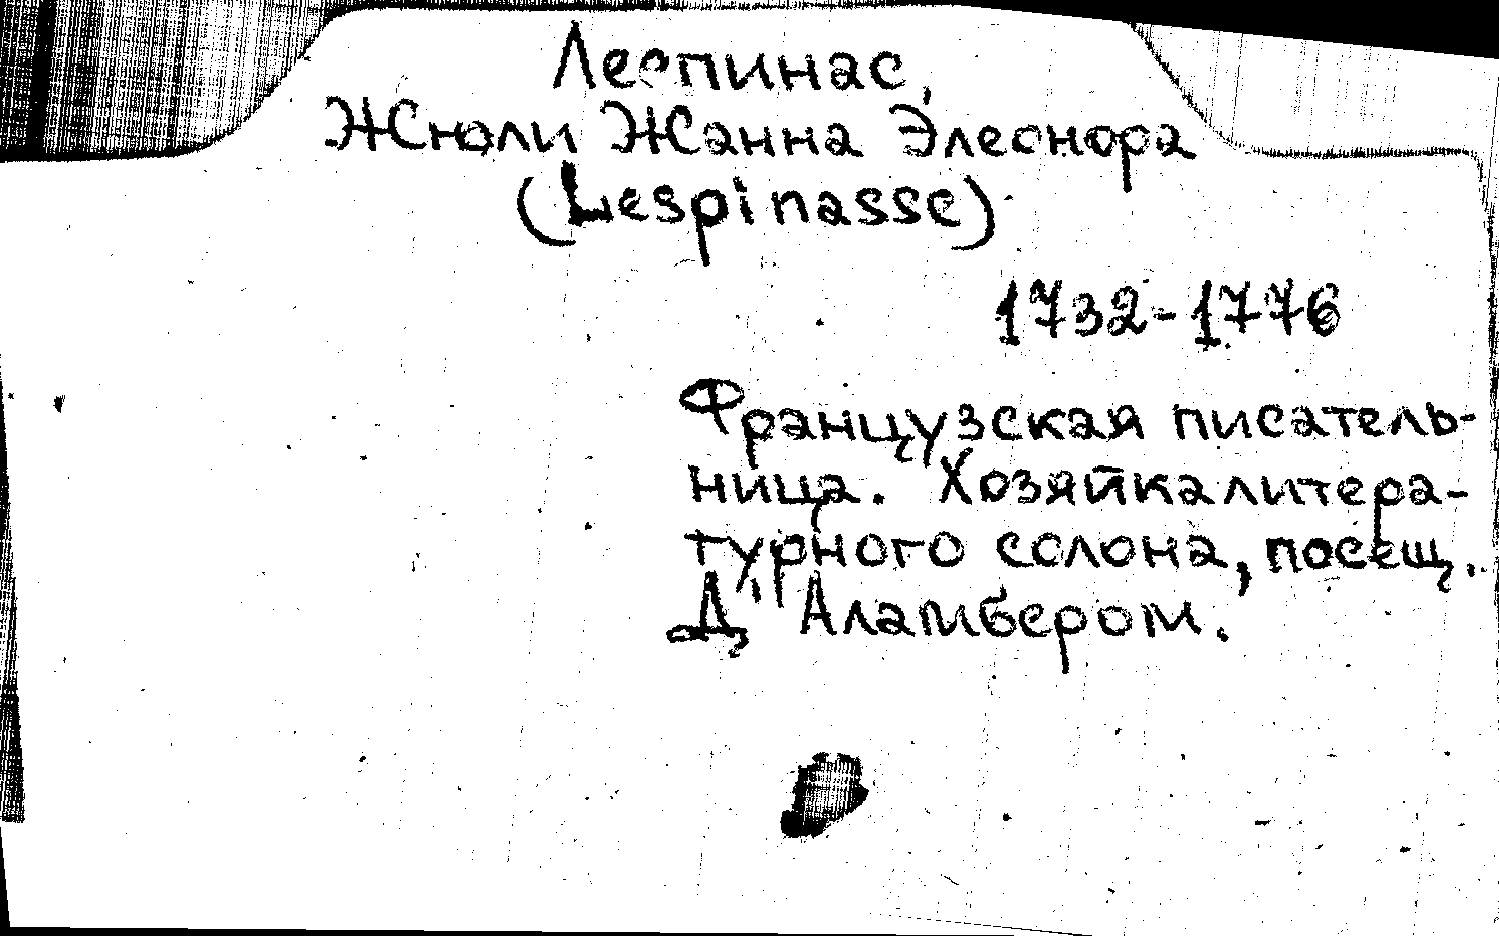 Леспинас,
Жюли Жанна Элеонора
(Lespinasse)
1732-1776
Французская писатель-
ница. Хозяйка литера-
турного солона, посещ.
Д'Аламбером.